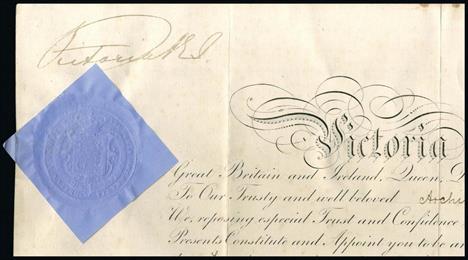 Victoria R I
Victoria
Great Britain and Ireland, Queen, D
To Our Trusty and well beloved Archi
We, reposing especial Trust and Confidence
Presents Constitute and Appoint you to be an